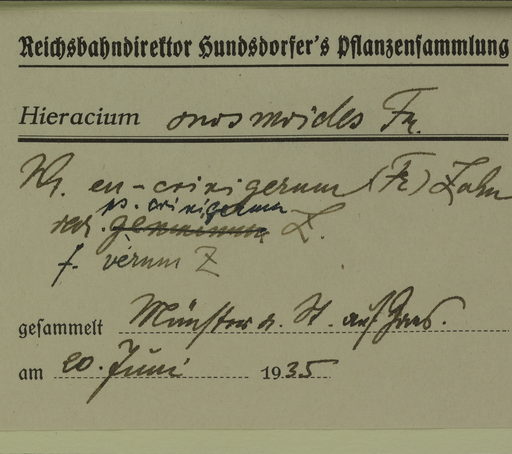 Reichsbahndirektor Hundsdorfer's Pflanzensammlung
Hieracium onosmoides Fr.
en-crinigerum (Fr) Zahn
ss. crinigerum
var. genuinum Z.
f. verum Z
gesammelt Münster a. St. auf
am 20. Juni 1935